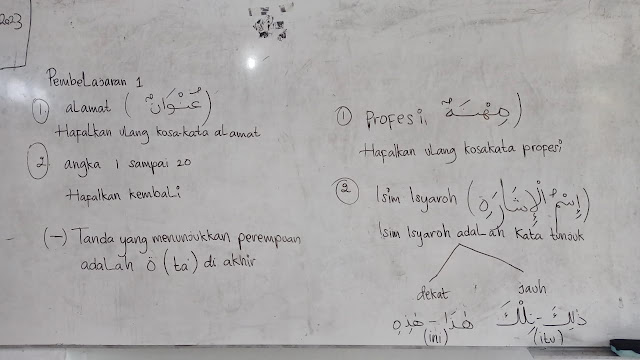 2023
Pembelajaran 1
① alamat (عُنْوَانٌ)
Hafalkan ulang kosa-kata alamat
② angka 1 sampai 20
Hafalkan kembali
(-) Tanda yang menunjukkan perempuan
adalah ة (ta) di akhir
① Profesi, مِهْنَةٌ)
Hafalkan ulang kosakata profesi
② Isim Isyaroh (إِسْمُ الْإِشَارَةِ)
Isim Isyaroh adalah kata tunjuk
dekat jauh
هٰذَا - هٰذِهِ ذٰلِكَ - تِلْكَ
(ini) (itu)